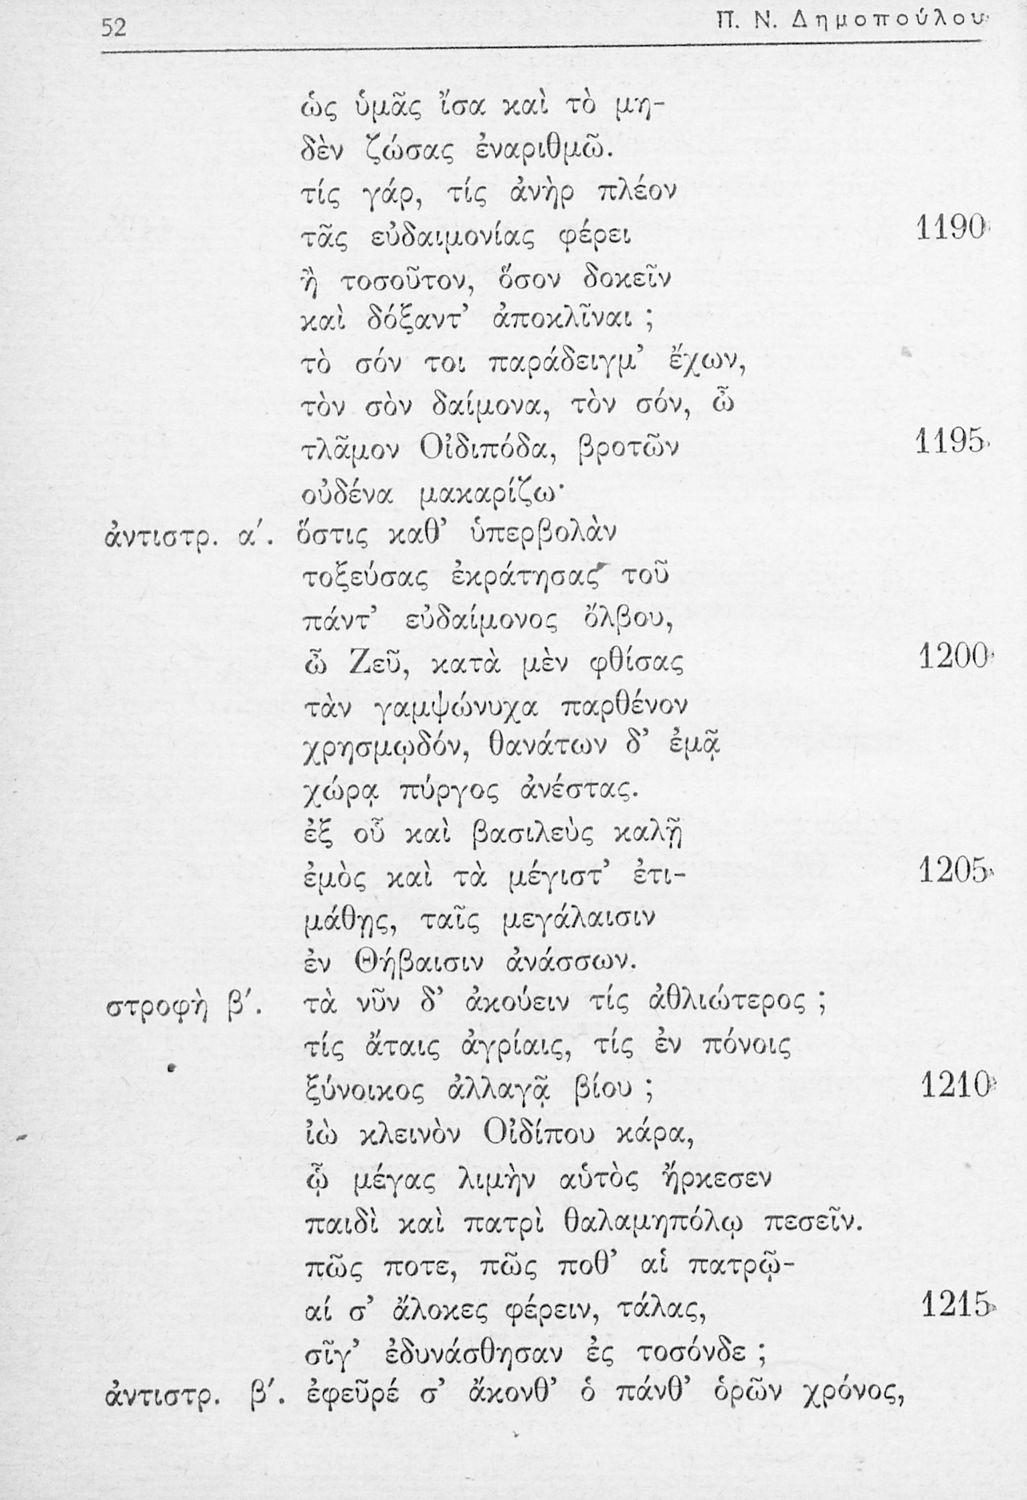 52 Π. Ν. Δημοπούλου
ὡς ὑμᾶς ἴσα καὶ τὸ μη-
δὲν ζώσας ἐναριθμῶ.
τίς γάρ, τίς ἀνὴρ πλέον
τᾶς εὐδαιμονίας φέρει 1190
ἢ τοσοῦτον, ὅσον δοκεῖν
καὶ δόξαντ’ ἀποκλῖναι ;
τὸ σόν τοι παράδειγμ’ ἔχων,
τὸν σὸν δαίμονα, τὸν σόν, ὦ
τλᾶμον Οἰδιπόδα, βροτῶν 1195
οὐδένα μακαρίζω·
ἀντιστρ. α΄. ὅστις καθ’ ὑπερβολὰν
τοξεύσας ἐκράτησας τοῦ
πάντ’ εὐδαίμονος ὄλβου,
ὦ Ζεῦ, κατὰ μὲν φθίσας 1200
τὰν γαμψώνυχα παρθένον
χρησμῳδόν, θανάτων δ’ ἐμᾷ
χώρᾳ πύργος ἀνέστας.
ἐξ οὗ καὶ βασιλεὺς καλῇ
ἐμὸς καὶ τὰ μέγιστ’ ἐτι- 1205
μάθης, ταῖς μεγάλαισιν
ἐν Θήβαισιν ἀνάσσων.
στροφὴ β΄. τὰ νῦν δ’ ἀκούειν τίς ἀθλιώτερος ;
τίς ἄταις ἀγρίαις, τίς ἐν πόνοις
ξύνοικος ἀλλαγᾷ βίου ; 1210
ἰὼ κλεινὸν Οἰδίπου κάρα,
ᾧ μέγας λιμὴν αὑτὸς ἤρκεσεν
παιδὶ καὶ πατρὶ θαλαμηπόλῳ πεσεῖν.
πῶς ποτε, πῶς ποθ’ αἱ πατρῷ-
αί σ’ ἄλοκες φέρειν, τάλας, 1215
σῖγ’ ἐδυνάσθησαν ἐς τοσόνδε ;
ἀντιστρ. β΄. ἐφεῦρέ σ’ ἄκονθ’ ὁ πάνθ’ ὁρῶν χρόνος,